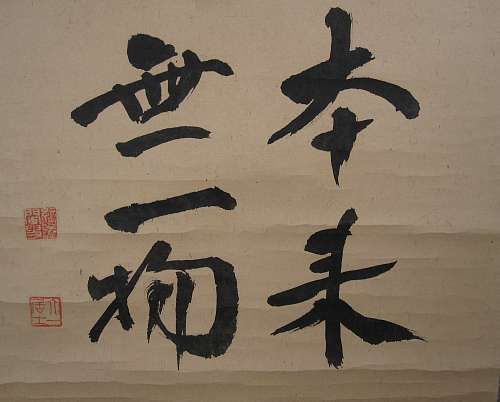 本来
無一物